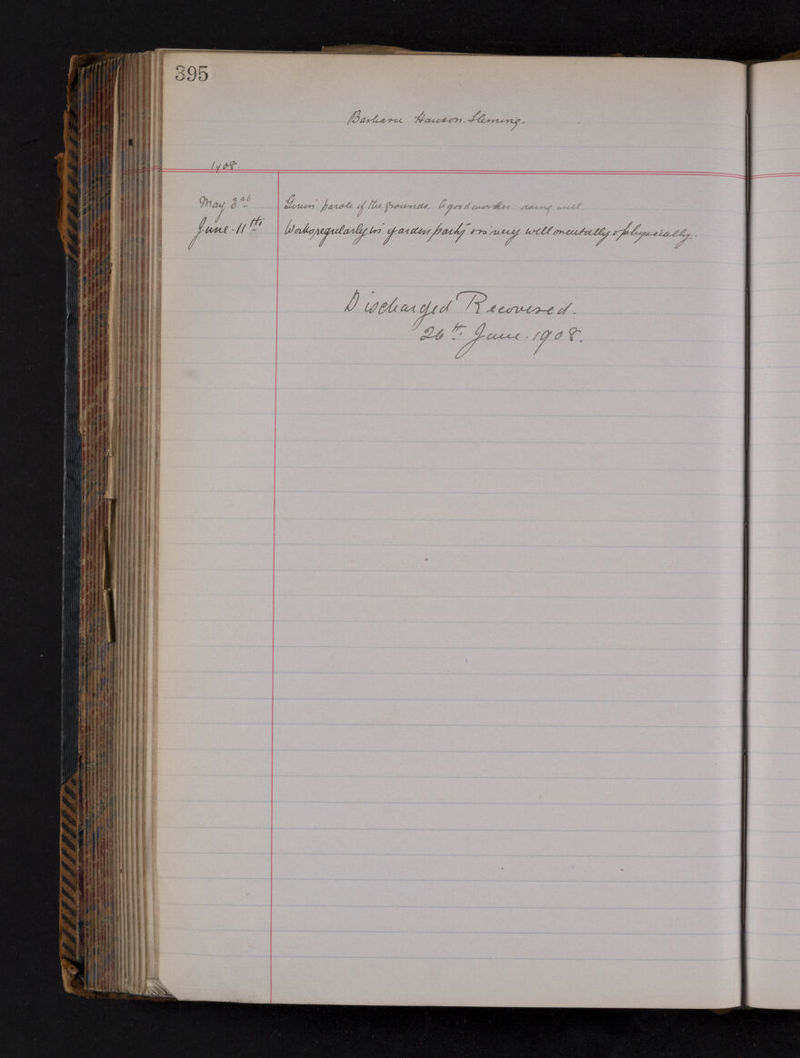 395
Hanson Fleming.
1908.
May 3rd Given parole of the grounds. A good worker. doing well.
June 11th Works regularly in garden party & is very well mentally & physically.
Discharged Recovered.
26th June. 1908.